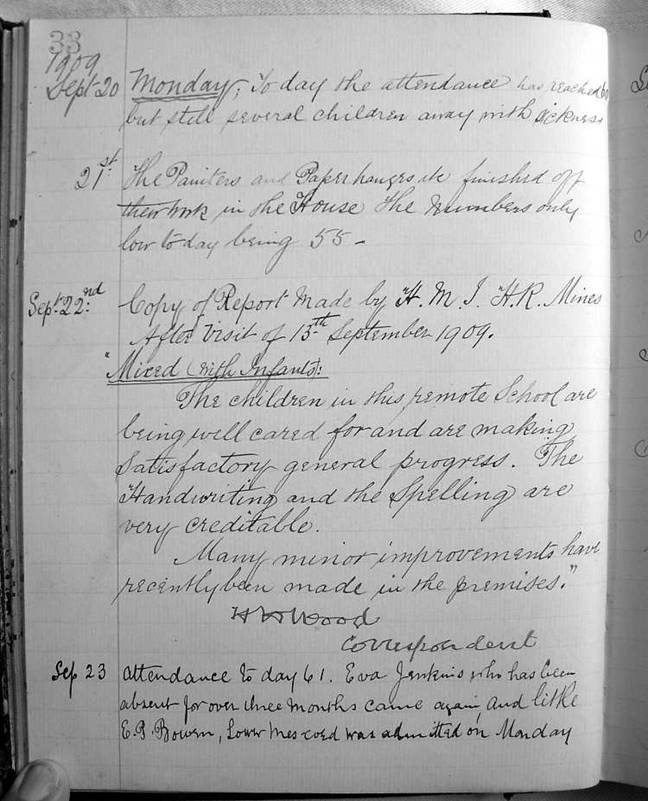 33
1909
Sept 20 Monday; To day the attendance has reached
but still several children away with sickness
21st. The Painters and Paperhangers etc finished off
their work in the House The Numbers only
low to day being 55 -
Sept. 22nd: Copy of Report Made by H. M. I. H.R. Mines
After Visit of 13th September 1909.
"Mixed (with Infants):
The children in this remote School are
being well cared for and are making
Satisfactory general progress. The
Handwriting and the Spelling are
very creditable.
Many minor improvements have
recently been made in the premises."
Wood
Correspondent
Sep 23 Attendance to day 61. Eva Jenkins who has been
absent for over three months came again, and little
E.B. Bowen, Lower was admitted on Monday